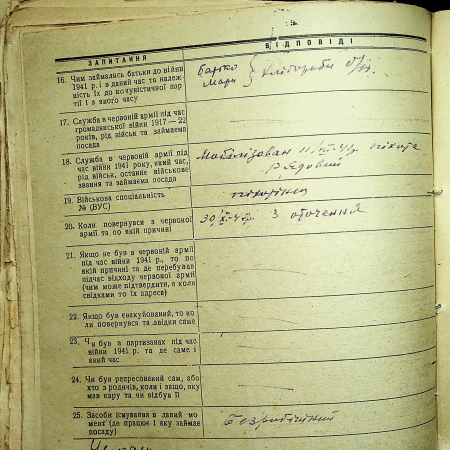 ЗАПИТАННЯ
ВІДПОВІДІ
16. Чим займались батьки до війни
1941 р. і в даний час та належ-
ність їх до комуністичної пар-
тії і з якого часу
Батько
Мати
хлібороби б/п.
17. Служба в червоній армії під час
громадянської війни 1917—22
років, рід військ та займаема
посада
18. Служба в червоній армії під
час війни 1941 року, який час,
рід військ, останнє військове
звання та займаєма посада
Мобілізован 11. піхота
Рядовий
19. Військова спеціальність
№ (ВУС)
піхотінец
20. Коли повернувся з червоної
армії та по якій причині
з оточення
21. Якщо не був в червоній армії
під час війни 1941 р., то по
якій причині та де перебував
підчас відходу червоної армії
(чим може підтвердити, а коли
свідками то їх адреса)
22. Якщо був евакуйований, то ко
ли повернувся та звідки саме
23. Чи був в партизанах під час
війни 1941 р. та де саме і
який час
24. Чи був репресований сам, або
хто з родичів, коли і защо, яку
мав кару та чи відбув її
25. Засоби існування в даний мо-
мент (де працює і яку займає
посаду)
безробітний